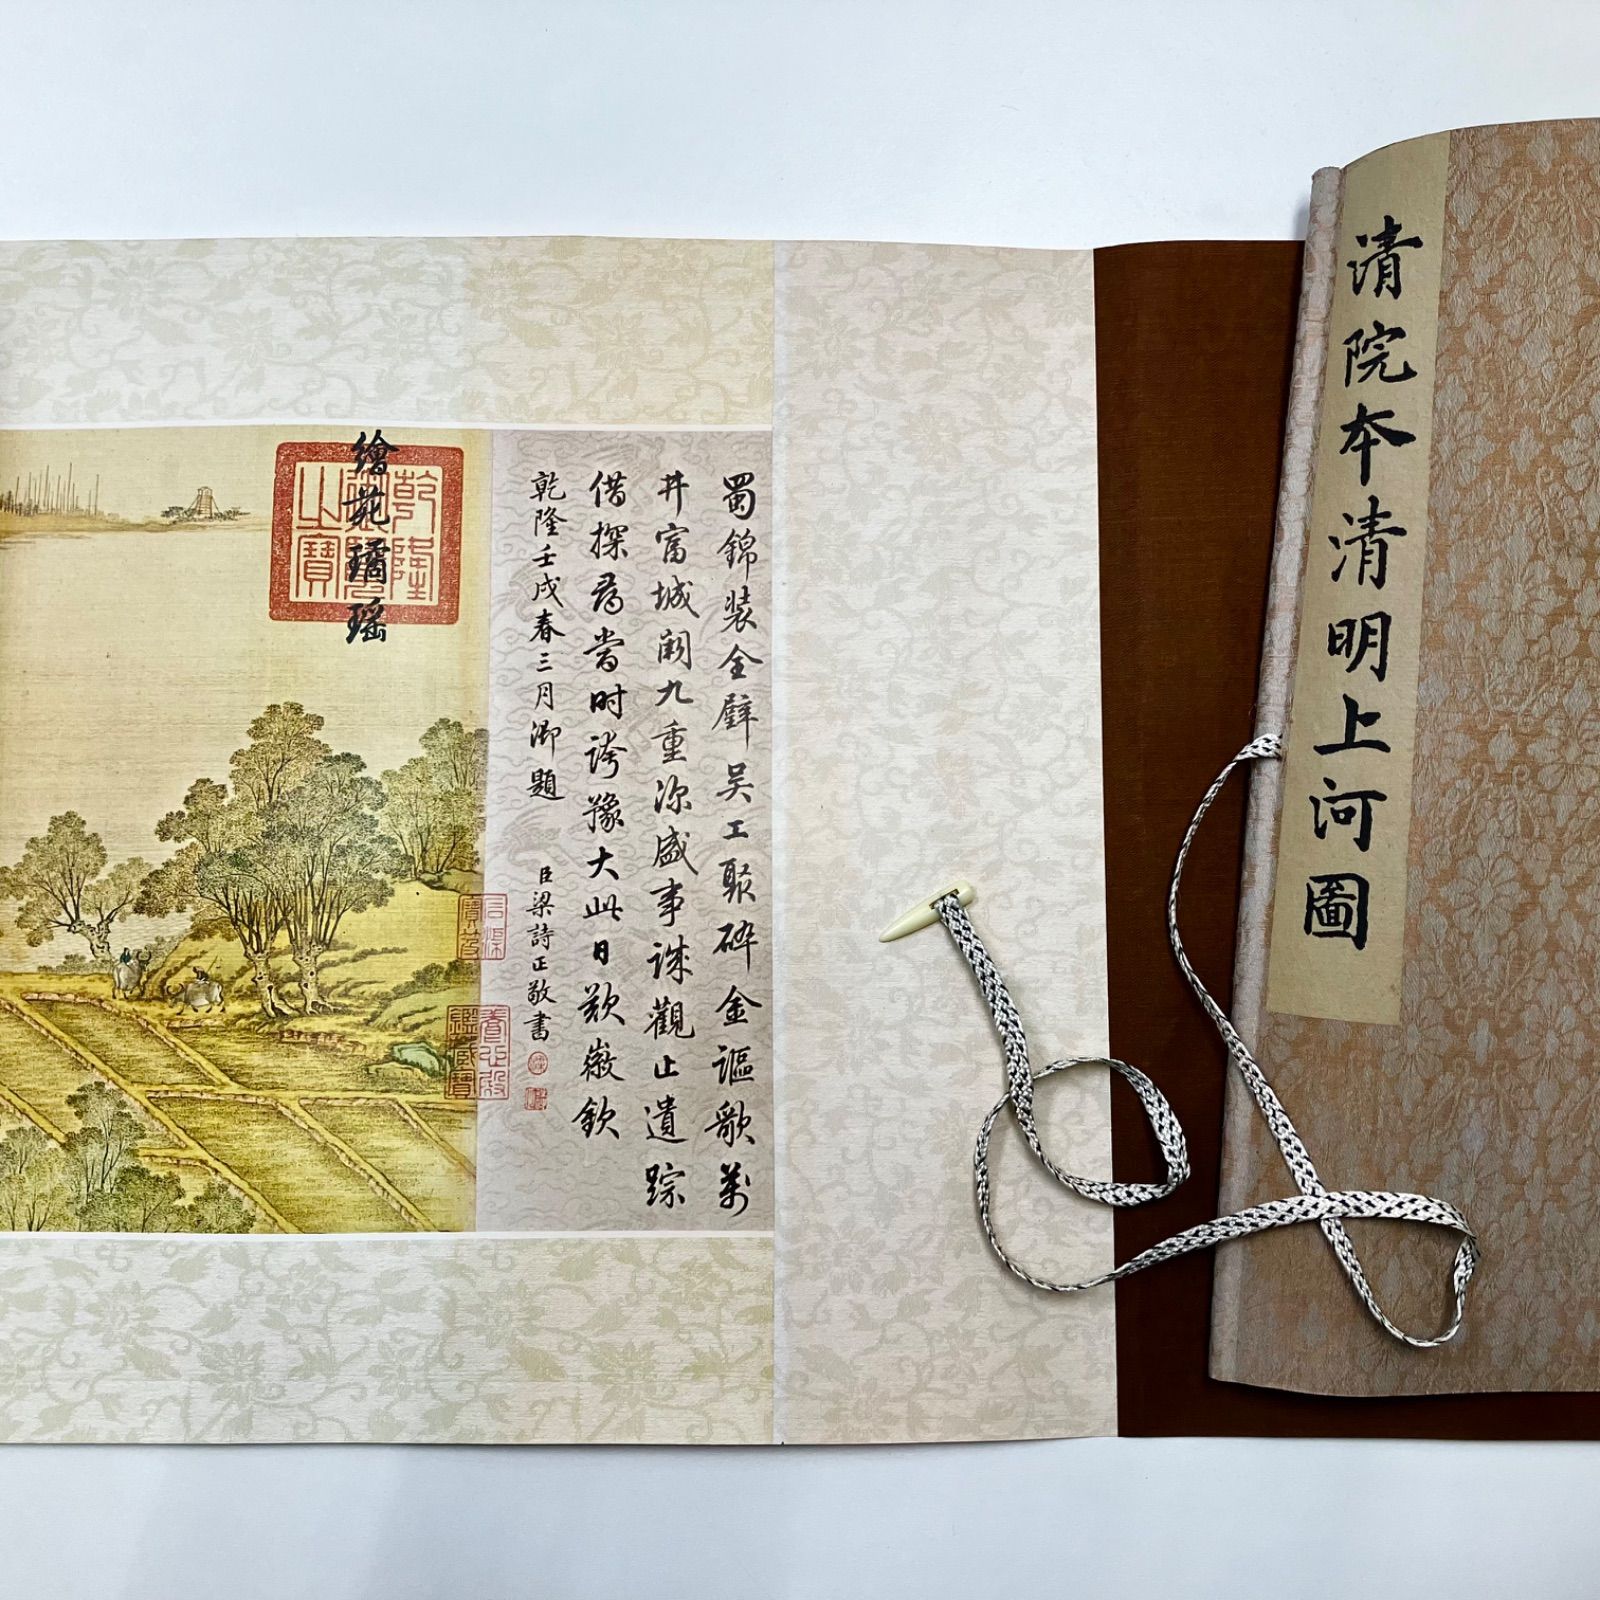 清院本清明上河圖
蜀錦装全璧吴工聚碎金謳歌萬
井富城闕九重深盛事誠觀止遺踪
借探尋當时誇豫大此日歎徽欽
乾隆壬戌春三月御題
臣梁詩正敬書
繪苑璚瑶
乾隆御覽之寶
養心殿鑑藏寶